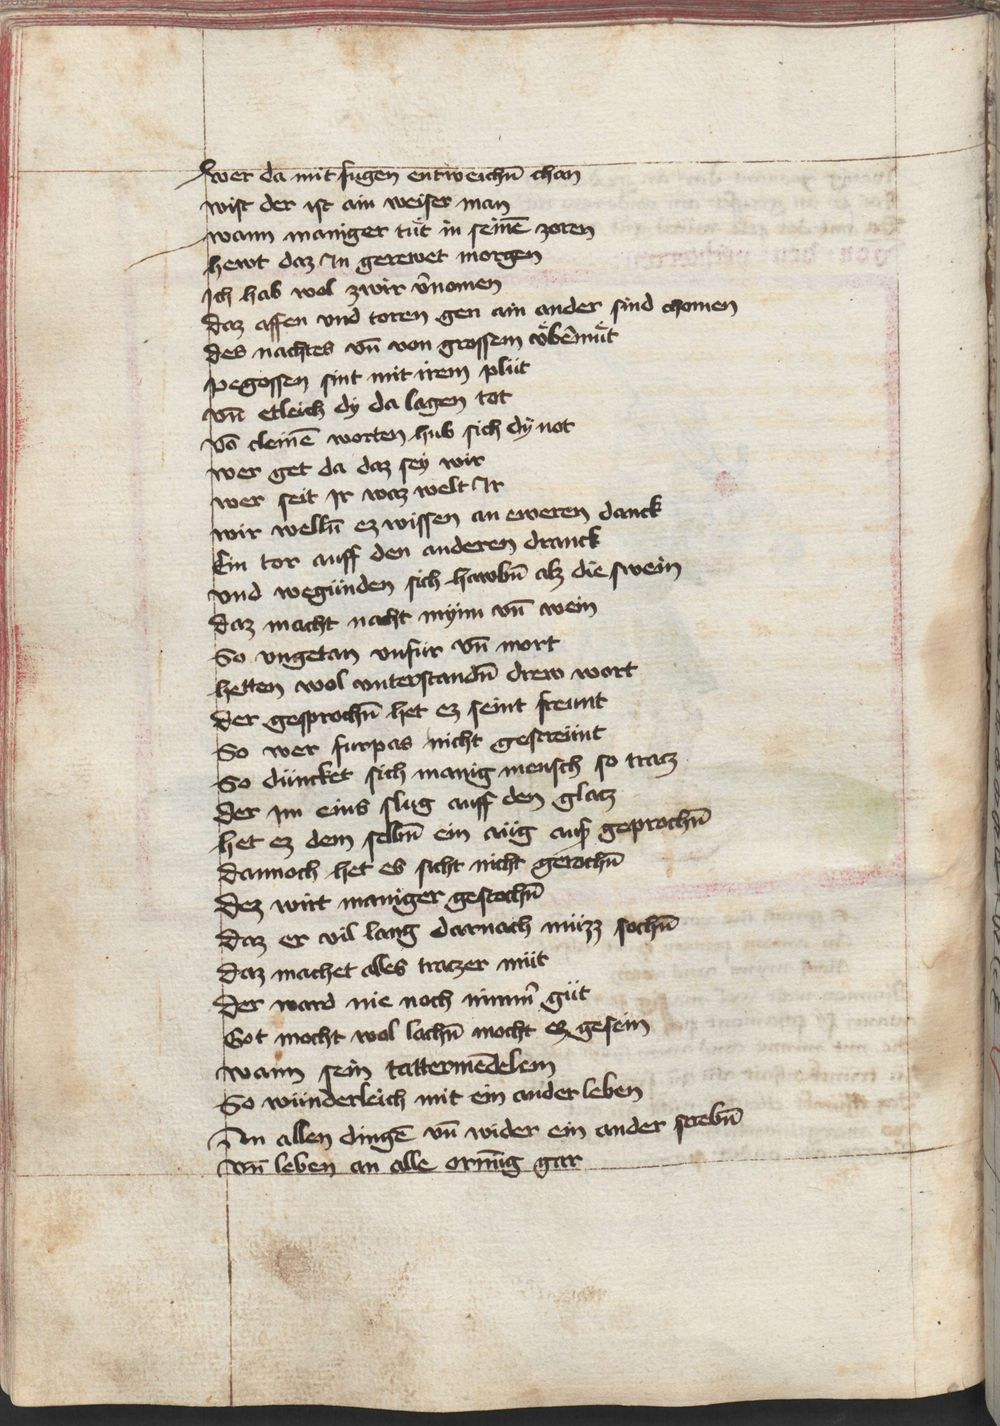 Wer da mit fugen entweichn̄ chan
wist der ist ain weiser man
wann maniger tüt in seinē zoren
hewt daz In gerewet morgen
Ich hab wol zwir v̄nomen
Daz affen vnd toren gen ain ander sind chomen
Des nachtes vn̄ von grossem v̈bēmüt
pegossen sint mit irem plüt
vn̄ etleich dy da lagen tot
vō cleinē worten hub sich dy not
wer get da daz sey wir
wer seit Ir waz welt Ir
wir welln̄ ez wissen an eweren danck
Ein tor auff den anderen dranck
vnd wegünden sich hawbn̄ alz die swein
Daz macht nacht mynn vn̄ wein
So vngetan vnfür vn̄ mort
hetten wol vnterstandn̄ drew wort
Der gesprochn̄ het ez seint freunt
So wer furpas nicht gestreünt
So düncket sich manig mensch so tracz
Der im eins slug auff den glacz
het ez dem selbn̄ ein aüg auß geprochn̄
dannoch het es sicht nicht gerochn̄
Dez wirt maniger gestochn̄
Daz er vil lang darnach müzz sochn̄
Daz machet alles traczer müt
Der ward nie noch nimm̄ güt
Got mocht wol lachn̄ mocht ez gesein
wann sein tattermēdelein
So wünderleich mit ein ander leben
In allen dingē vn̄ wider ein ander strebn̄
vn̄ leben an alle orn̄ūg gar